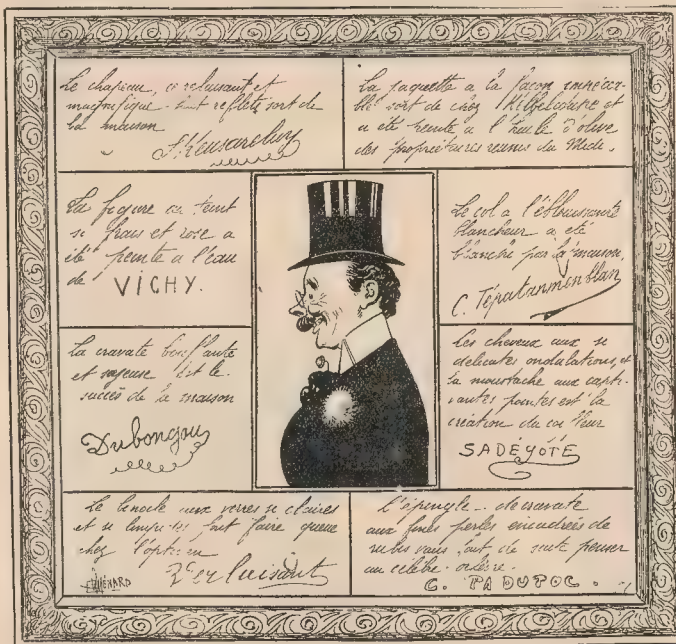 Le chapeau, ce reluisant et
magnifique huit reflets sort de
la maison
La jaquette a la façon impécca-
ble sort de chez
a été peinte a l'huile d'olive
des propriétaires reunis du Midi.
La figure au teint
si frais et rose a
été peinte a l'eau
de VICHY.
Le col a l'éblouissante
blancheur a été
blanchi par la maison,
C. Tépatanmenblan
La cravate bouffante
et soyeuse est le
succès de la maison
Dubongou
Les cheveux aux si
delicates ondulations, et
la moustache aux capti-
vantes pointes est la
création du coiffeur
SADÉYOTÉ
Le binocle aux verres si claires
et si limpides fait faire queue
chez l'opticien
L'épingle de cravate
aux fines perles encadrées de
rubis vous fait de suite penser
au célèbre
C. PADUTOC.